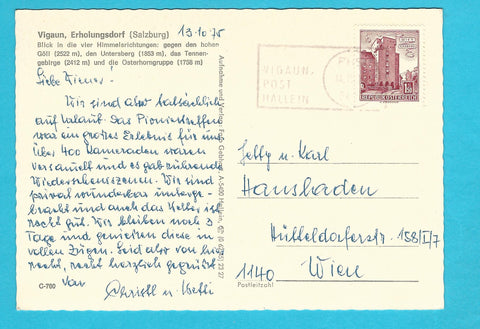 Vigaun, Erholungsdorf (Salzburg)
13.10.75
Blick in die vier Himmelsrichtungen: gegen den hohen
Göll (2522 m), den Untersberg (1853 m), das Tennen-
gebirge (2412 m) und die Osterhorngruppe (1758 m)
Liebe Wiener!
Wir sind aber tatsächlich
auf Urlaub. Das Pioniertreffen
war ein großes Erlebnis für uns
über 400 Kameraden waren
versammelt und es gab rührende
Wiedersehensszenen. Wir sind
privat wunderbar unterge-
bracht und auch das Wetter ist
recht gut. Wir bleiben noch 3
Tage und genießen diese in
vollen Zügen. Seid aber von her
recht, recht herzlich gegrüßt
von
Christl u.
C-760
Aufnahme und Verlag
VIGAUN,
POST
HALLEIN
REPUBLIK ÖSTERREICH
Jetty u. Karl
Hansbaden
Hütteldorferstr. 158/I/7
1140 Wien
Postleitzahl